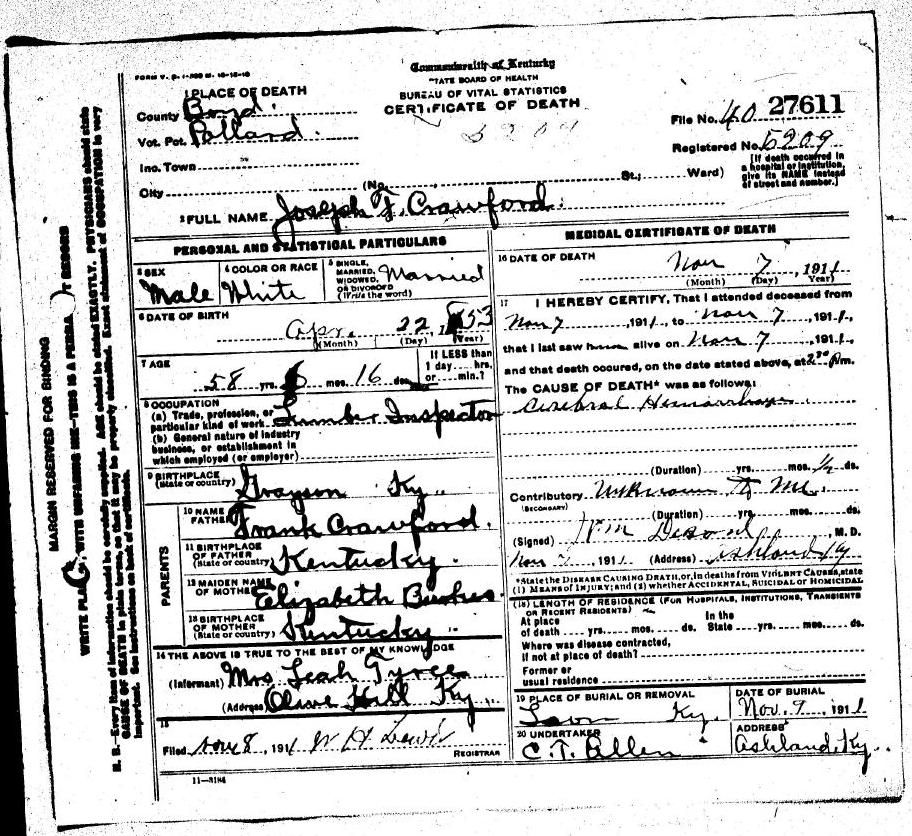 FORM V. S.
Commonwealth of Kentucky
STATE BOARD OF HEALTH
BUREAU OF VITAL STATISTICS
CERTIFICATE OF DEATH
1 PLACE OF DEATH
County Boyd.
Vot. Pct. Pollard.
Inc. Town
City (No. St., Ward)
File No. 40 27611
Registered No. 5209
[If death occurred in a hospital or institution, give its NAME instead of street and number.]
5209
2 FULL NAME Joseph F. Crawford.
PERSONAL AND STATISTICAL PARTICULARS
3 SEX
Male
4 COLOR OR RACE
White
5 SINGLE, MARRIED, WIDOWED, OR DIVORCED (Write the word)
Married
6 DATE OF BIRTH
Apr. 22, 1853
(Month) (Day) (Year)
7 AGE
58 yrs. 6 mos. 16 ds.
If LESS than 1 day.....hrs. or.....min.?
8 OCCUPATION
(a) Trade, profession, or particular kind of work Lumber Inspector
(b) General nature of industry business, or establishment in which employed (or employer)
9 BIRTHPLACE
(State or country) Grayson Ky.
PARENTS
10 NAME FATHER Frank Crawford.
11 BIRTHPLACE OF FATHER
(State or country) Kentucky.
12 MAIDEN NAME OF MOTHER Elizabeth
13 BIRTHPLACE OF MOTHER
(State or country) Kentucky.
14 THE ABOVE IS TRUE TO THE BEST OF MY KNOWLEDGE
(Informant) Mrs Leah Tyree
(Address) Olive Hill Ky.
15
Filed Nov 8, 1911 W H Lewis
REGISTRAR
11—3184
MEDICAL CERTIFICATE OF DEATH
16 DATE OF DEATH
Nov 7, 1911
(Month) (Day) Year)
17 I HEREBY CERTIFY, That I attended deceased from
Nov 7, 1911, to Nov 7, 1911,
that I last saw him alive on Nov 7, 1911,
and that death occured, on the date stated above, at 2 30 Pm.
The CAUSE OF DEATH* was as follows:
Cerebral Hemorrhage
(Duration) yrs. mos. 1/2 ds.
Contributory Unknown to Me.
(SECONDARY)
(Duration) yrs. mos. ds.
(Signed) Wm M.D.
Nov 7 1911 (Address) Ashland Ky
*State the DISEASE CAUSING DEATH, or, in deaths from VIOLENT CAUSES, state
(1) MEANS OF INJURY; and (2) whether ACCIDENTAL, SUICIDAL or HOMICIDAL
(18) LENGTH OF RESIDENCE (FOR HOSPITALS, INSTITUTIONS, TRANSIENTS OR RECENT RESIDENTS)
At place of death yrs. mos. ds. In the State yrs. mos. ds.
Where was disease contracted, if not at place of death?
Former or usual residence
19 PLACE OF BURIAL OR REMOVAL
Leon Ky.
DATE OF BURIAL
Nov. 9, 1911
20 UNDERTAKER
C. T. Allen
ADDRESS
Ashland, Ky.
MARGIN RESERVED FOR BINDING
N. B.—Every item of information should be carefully supplied. AGE should be stated EXACTLY. PHYSICIANS should state
CAUSE OF DEATH in plain terms, so that it may be properly classified. Exact statement of OCCUPATION is very
important. See instructions on back of certificate.